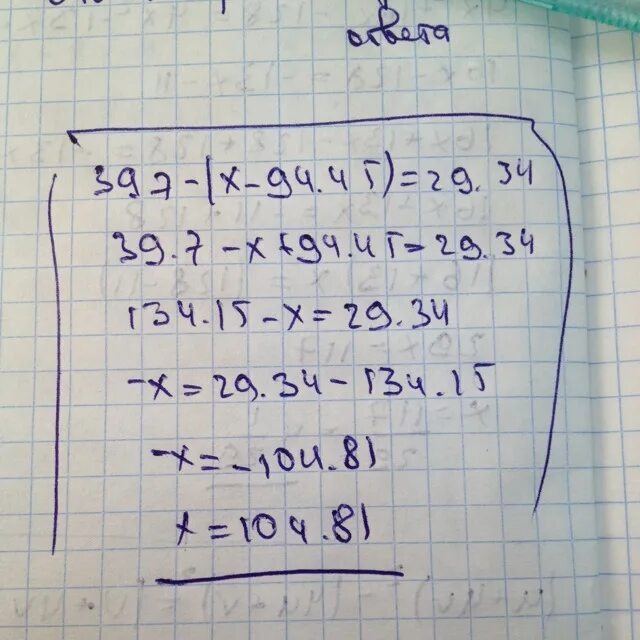 ответа
39.7-(x-94.45)=29.34
39.7-x+94.45=29.34
134.15-x=29.34
-x=29.34-134.15
-x=-104.81
x=104.81